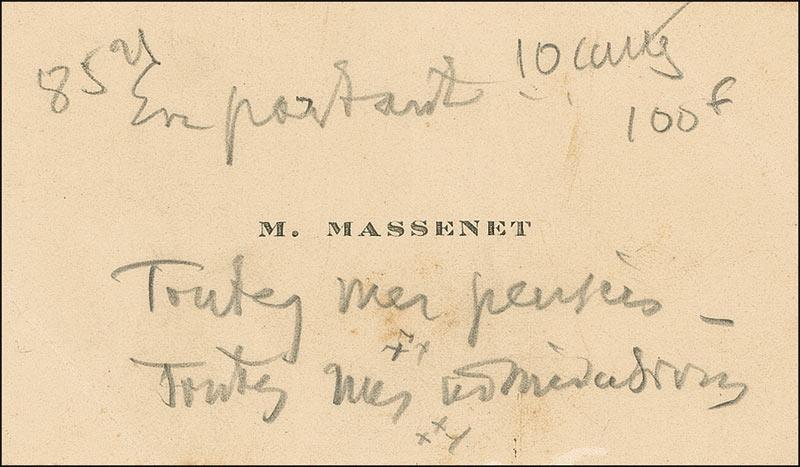 En partant
100 f
M. MASSENET
Toutes mes pensées –
Toutes mes admirations